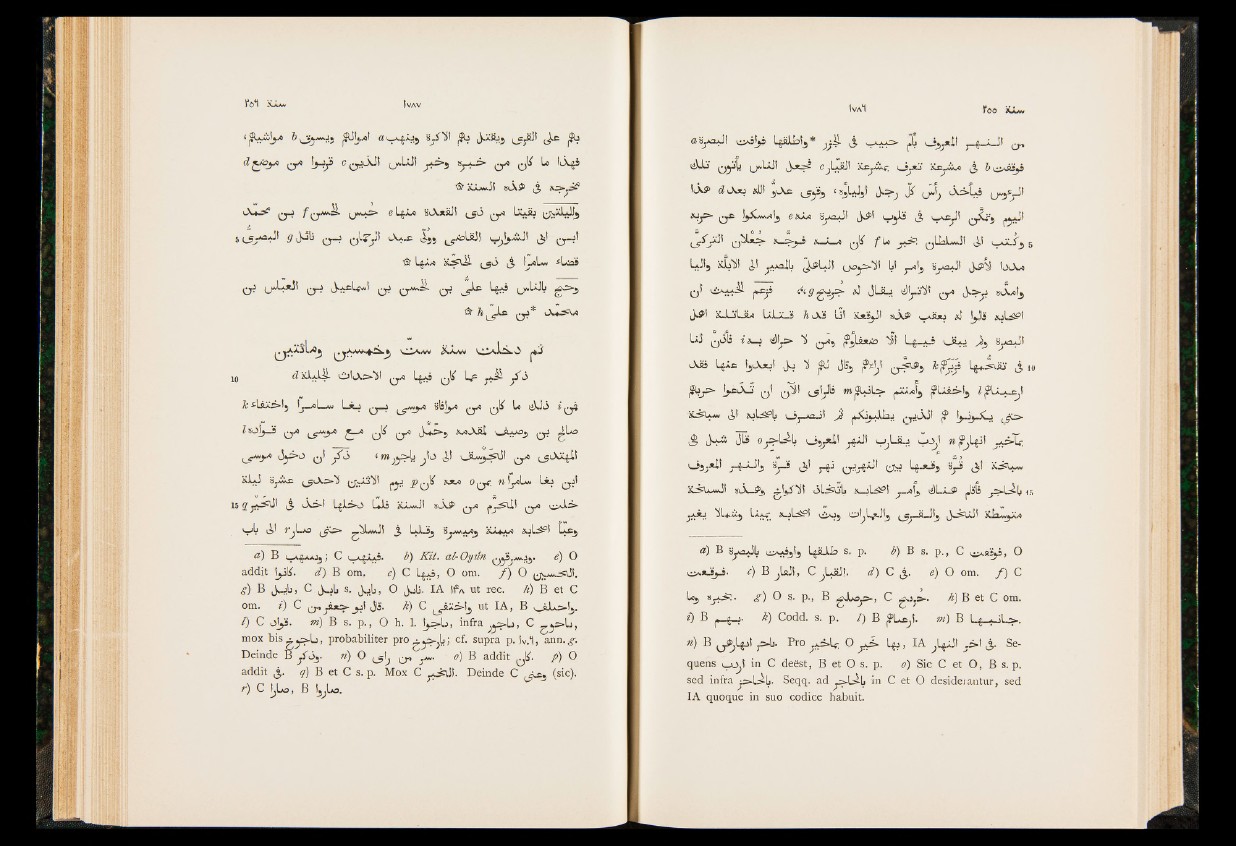 ١٧٨٦ سنة ٢٥٥
من النـهـر المعروف بأم حبيب فى الجزر *وأطلقها فوافت البصرة a
فوقفت b فى مشرعة تعرف بمشرعة القيّار c فجعل الناس يأتون تلك
الرءوس فيأخذ رأس كلّ رجل اولياؤه، وقوى عدوّ الله بعد d هذا
اليوم وتمكّن الرعب فى قلوب اهل البصرة منه e وامسكوا عن حربه
5 وكُتب الى السلطان بخبر ما f كان منه فوجّه جُعْلان التركىّ
مددا لأهل البصرة وامر ابا الاحوص الباهلىّ بالمصير الى الأبلّة واليا
وامدّه برجل من الاتراك يقال له g فزعم الخبيث ان
اصحابه قالوا له بعقب هذه الوقعة انّا قد h قتلنا مقاتلة اهل
البصرة ولم يبق فيها الّا ضعفاؤهم ومن لا حراك به i فأذن لنا
10 فى تقحّمها فزبرهم k وهجّن اراءهم وقال لهم لا بل ابعدوا عنها فقد
ارعبناهم l واخفناهم وأمنتم جانبهم m فالرأى الآن ان تدعوا حربهم
حتى يكونوا هم الذين يطلبونكم ثم انصرف بأصحابه الى سبخة
بمآخير انهارهم n يقارب النهر المعروف بالحاجر o قال شبل هى
سبخة ابى قُرّة وقعها بين النهرين نهر ابى قرّة والنهر المعروف
15 بالحاجر فأقام هناك وأمر اصحابه باتّخاذ الاكواخ وهذه السبخة
متوسّطة النخل والقرى والعمارات وبثّ اصحابه يمينا وشمالا يغير
a) B واوفيت بالبصرة طلقها s. p. b) B s. p., C فوقفت, O
فوقعت. c) B القار, C القيار. d) C فى. e) O om. f) C
بخبره وما. g) O s. p., B , C . h) B et C om.
i) B بهم. k) Codd. s. p. l) B ارعبهم. m) B جانبها.
n) B . Pro بماخير O بها خير, IA فى اخر النهار. Se-
quens in C deëst, B et O s. p. o) Sic C et O, B s. p.
sed infra بالحاجر. Seqq. ad بالحاجر in C et O desiderantur, sed
IA quoque in suo codice habuit.
١٧٨٧ سنة ٢٥٦
بهم على القرى ويقتل بهم الأكرة وينهب a اموالهم ويسوق b مواشيهم،
فهذا ما كان من خبره وخبر الناس الذين c قربوا من موضع d
مخرجه فى هذه السنة
ولليلتين بقيتا من ذى القعدة منها e حبس الحسن f بن محمد
5 ابن ابى الشوارب القاضى وولّى عبد الرحمان بن نائل g البصرى
قضاء سامرّا فى ذى الحجّة منها
وحجّ بالناس فيها علىّ بن الحسن بن اسماعيل بن العبّاس بن
محمّد *بن علىّ h
ثم دخلت سنة ستّ وخمسين ومائتين
10 ذكر الخبر عما كان فيها من الاحداث الجليلة d
فمن i ذلك ما كان من موافاة موسى بن بغا سامرا واختفاء k
صالح بن وصيف لمقدمه وحمْل من كان مع موسى من قوّاده l
المهتدى من الجوسق الى دار ياجور m، ذُكر ان دخول موسى
ابن بغا سامرا n بمن o معه كان p يوم الاثنين لاحدى عشرة ليلة
15 خلت من المحرّم من هذه السنة فلمّا دخلها اخذ فى الحير q
وعبّأ اصحابه ميمنة وميسرة وقلبا فى السلاح حتى صار r الى باب
a) B ; C فينهب. b) Kit. al-Oyûn . c) O
addit كانوا. d) B om. e) C فيها, O om. f) O الحسين.
g) B , C s. , O . IA ١٣٨ ut rec. h) B et C
om. i) C قال ابو جعفر من. k) C واختفى ut IA, B .
l) C قواد. m) B s. p., O h. l. , infra , C ,
mox bis , probabiliter pro ; cf. supra p. ١٧٠٦, ann. g.
Deinde B وذكر. n) O سر من راى. o) B addit كان. p) O
addit فى. q) B et C s. p. Mox C . Deinde C وعبى (sic).
r) C صارا, B صاروا.